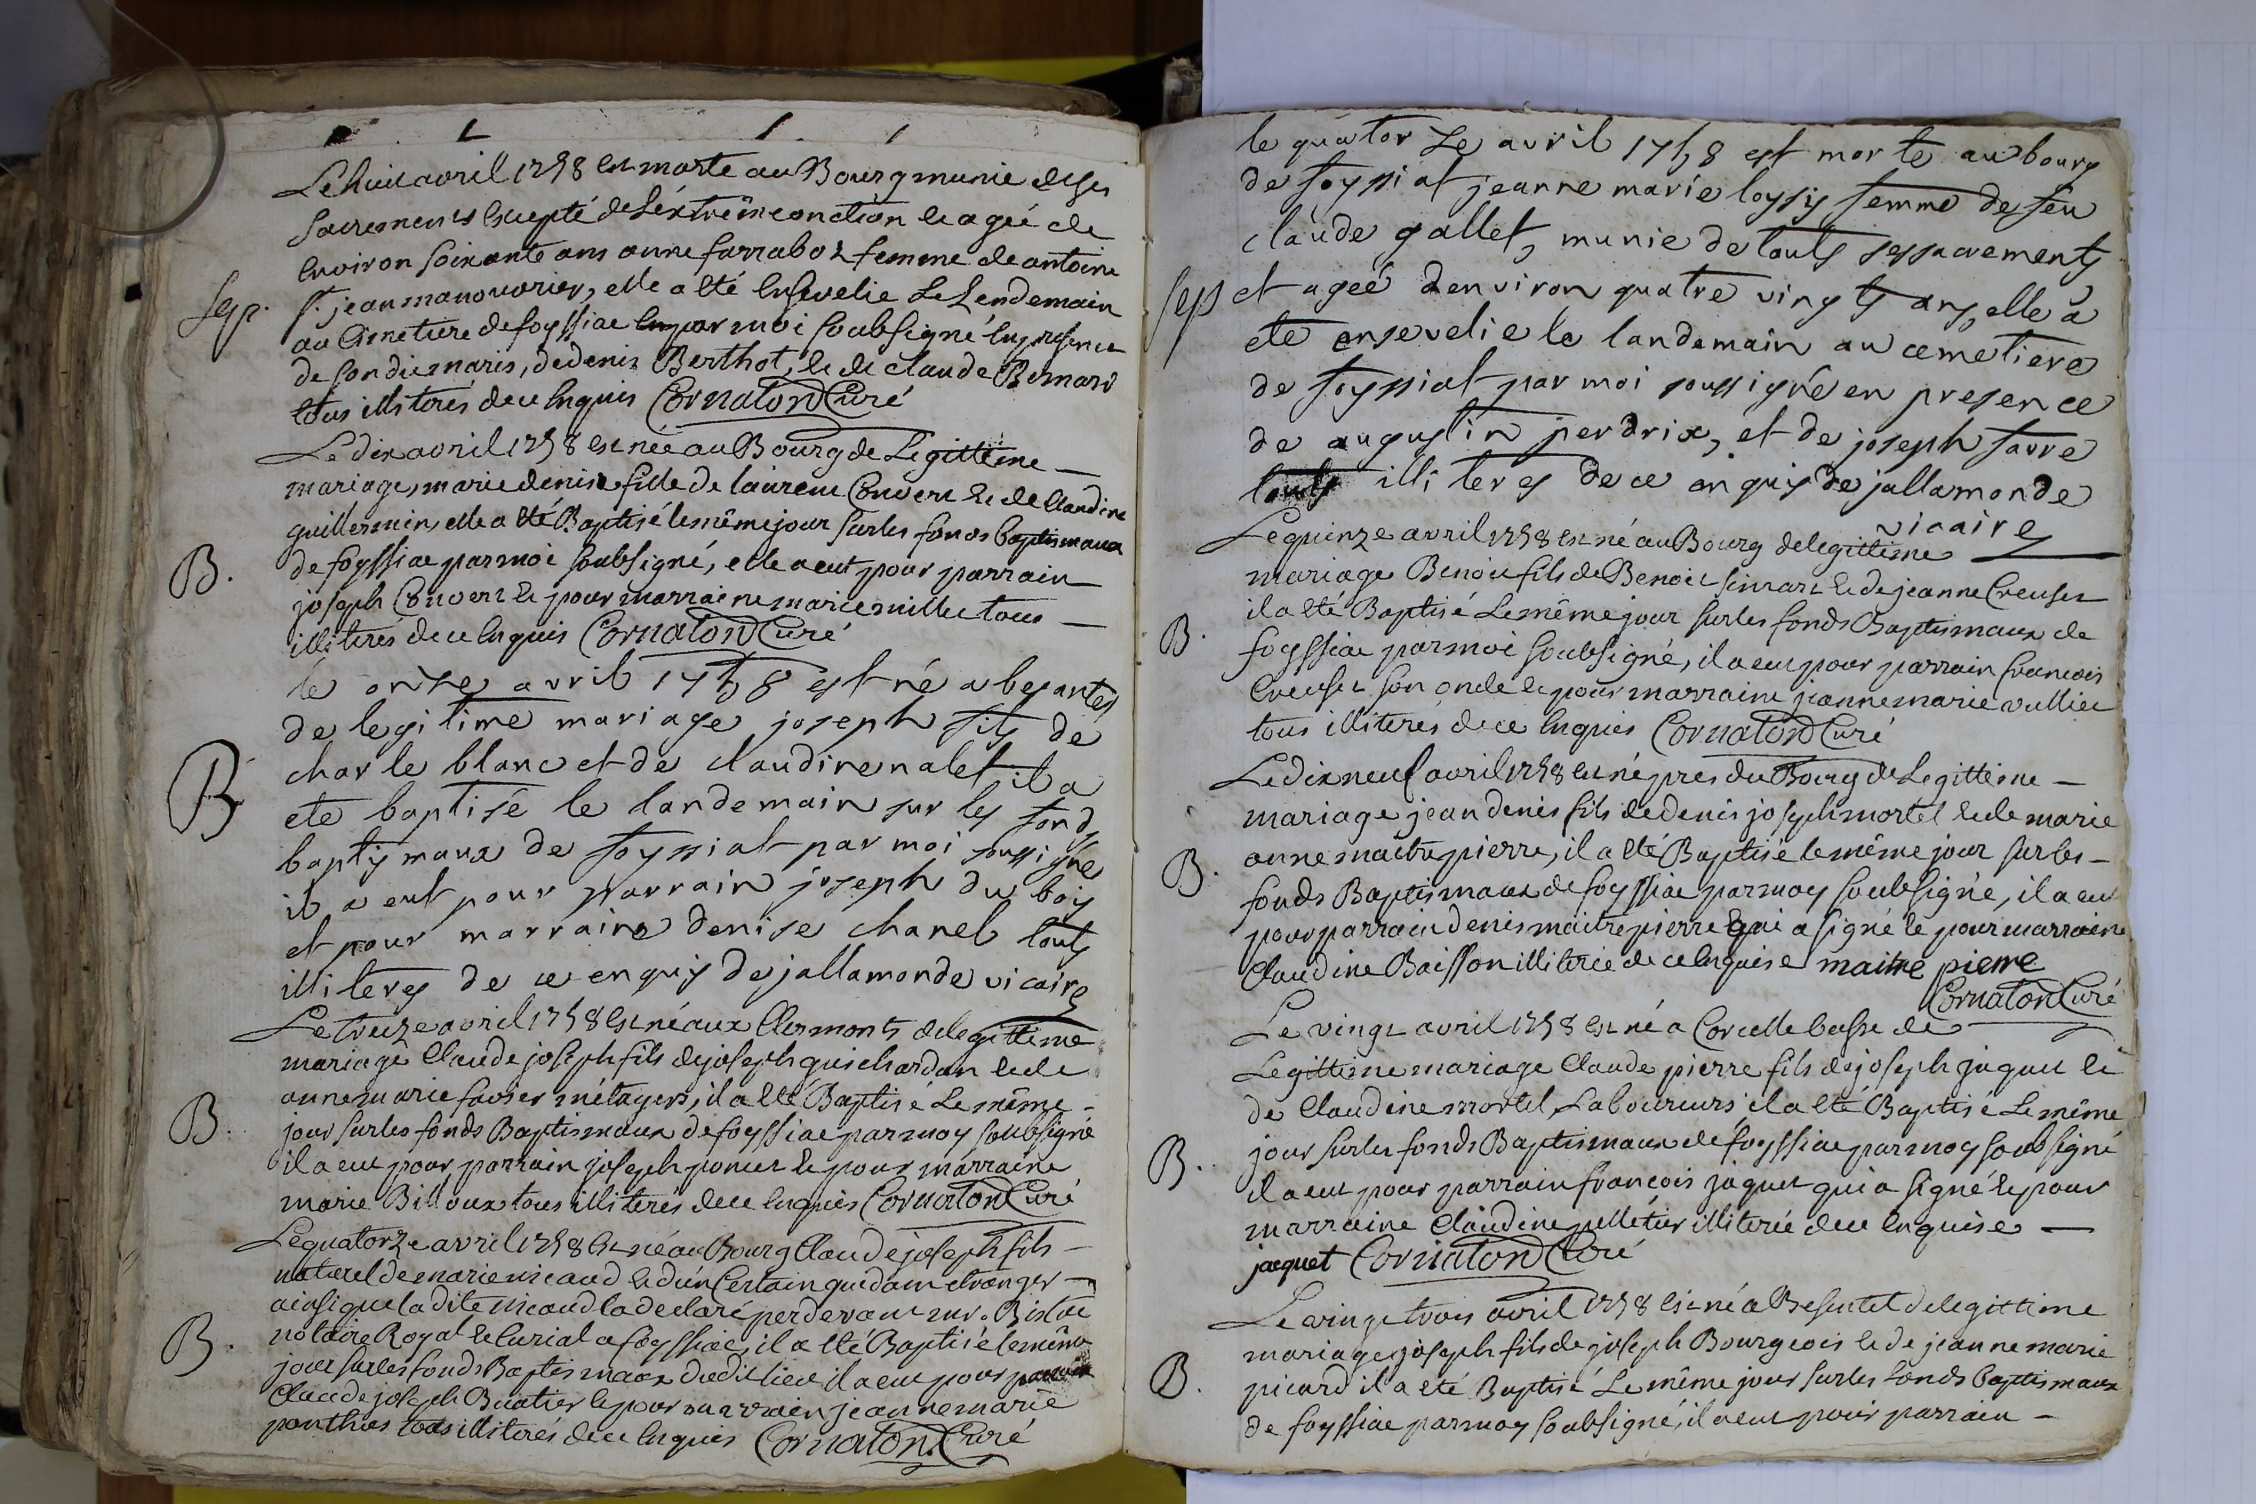 Le huit avril 1758 est morte au Bourg munie de ses
sacremens excepté de l'éxtrême onction et agée de
environ soixante ans anne farraboz femme de antoine
Sep.
st. jean manouvrier, elle a eté ensevelie Le Lendemain
au Cimetiere de foyssiac par moi soubsigné en presence
de son dit maris, de denis Berthot, et de claude Bernard
tous illiterés de ce enquis Cornaton Curé
Le dix avril 1758 est née au Bourg de Legittime
mariage, marie denise fille de laurent Convert et de Claudine
guillermin, elle a eté Baptisé le même jour sur les fonds baptismaux
B.
de foyssiac par moi soubsigné, elle a eut pour parrain
joseph Convert et pour marraine marie millet tous
illiterés de ce enquis Cornaton Curé
le onze avril 1758 est né a besantes
de legitime mariage joseph fils de
B
charle blanc et de claudine nalet il a
ete baptisé le landemain sur les fonds
baptismaux de foyssiat par moi soussigné
il a eut pour parrain joseph du bois
et pour marraine denise chanel touts
illiteres de ce enquis dejallamonde vicaire
Le treize avril 1758 est né aux Clermonts de legittime
mariage Claude joseph fils de joseph guichardan et de
anne marie favier métayers, il a eté Baptisé Le même
B.
jour sur les fonds Baptismaux de foyssiac par moy soubsigné
il a eut pour parrain joseph poncet et pour marraine
marie Billoux tous illiterés de ce enquis Cornaton Curé
Le quatorze avril 1758 est né au Bourg Claude joseph fils
naturel de marie nicaud et d'un Certain quidam etranger
ainsi que la dite nicaud l'a declaré perdevant mr.
B.
notaire Royal et Curial a foyssiac, il a eté Baptisé le même
jour sur les fonds Baptismaux du dit lieu il a eut pour parrain
Claude joseph Buatier et pour marraien jeanne marie
ponthus tous illiterés de ce enquis Cornaton Curé
le quatorze avril 1758 est morte au bourg
de foyssiat jeanne marie loysy femme de feu
claude gallet, munie de touts ses sacrements
Sep
et ageé d'environ quatre vingts ans, elle a
ete ensevelie le landemain au cemetiere
de foyssiat par moi soussigné en presence
de augustin perdrix, et de joseph favre
touts illiteres de ce enquis dejallamonde
vicaire
Le quinze avril 1758 est né au Bourg de legittime
mariage Benoit fils de Benoit simart et de jeanne Creuset
B.
il a eté Baptisé Le même jour sur les fonds Baptismaux de
foyssiac par moi soubsigné, il a eut pour parrain francois
Creuset son oncle et pour marraine jeanne marie vulliet
tous illiterés de ce enquis Cornaton Curé
Le dix neuf avril 1758 est né pres du Bourg de Legittime
mariage jean denis fils de denis joseph mortel et de marie
B.
anne maitrepierre, il a eté Baptisé le même jour sur les
fonds Baptismaux de foyssiac par moy soubsigné, il a eut
pour parrain denis maitrepierre qui a signé et pour marraine
Claudine Boisson illiterée de ce enquise maitre pierre
Cornaton Curé
Le vingt avril 1758 est né a Corcelle basse de
Legittime mariage Claude pierre fils de joseph jaquet et
de Claudine mortel, Laboureurs il a eté Baptisé Le même
B.
jour sur les fonds Baptismaux de foyssiac par moy soubsigné
il a eut pour parrain francois jaquet qui a signé et pour
marraine Claudine pelletier illiterée de ce enquise
jacquet Cornaton Curé
Le vingt trois avril 1758 est né a Besentet de legittime
mariage, joseph fils de joseph Bourgeois et de jeanne marie
B.
picard il a eté Baptisé Le même jour sur les fonds baptismaux
de foyssiac par moy soubsigné, il a eut pour parrain